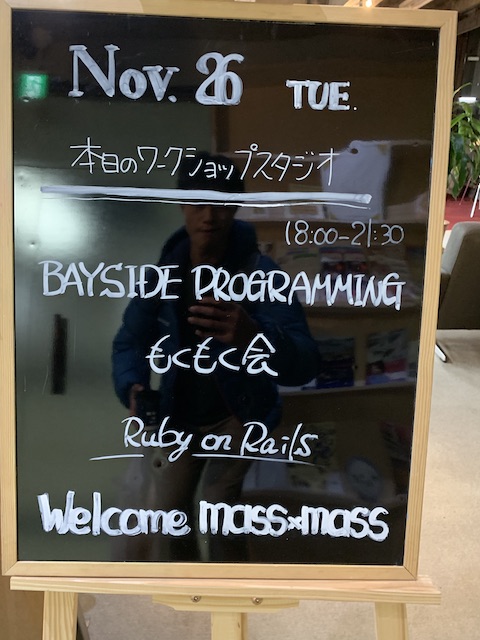 Nov. 26 TUE.
本日のワークショップスタジオ
18:00-21:30
BAYSIDE PROGRAMMING
もくもく会
Ruby on Rails
Welcome mass×mass